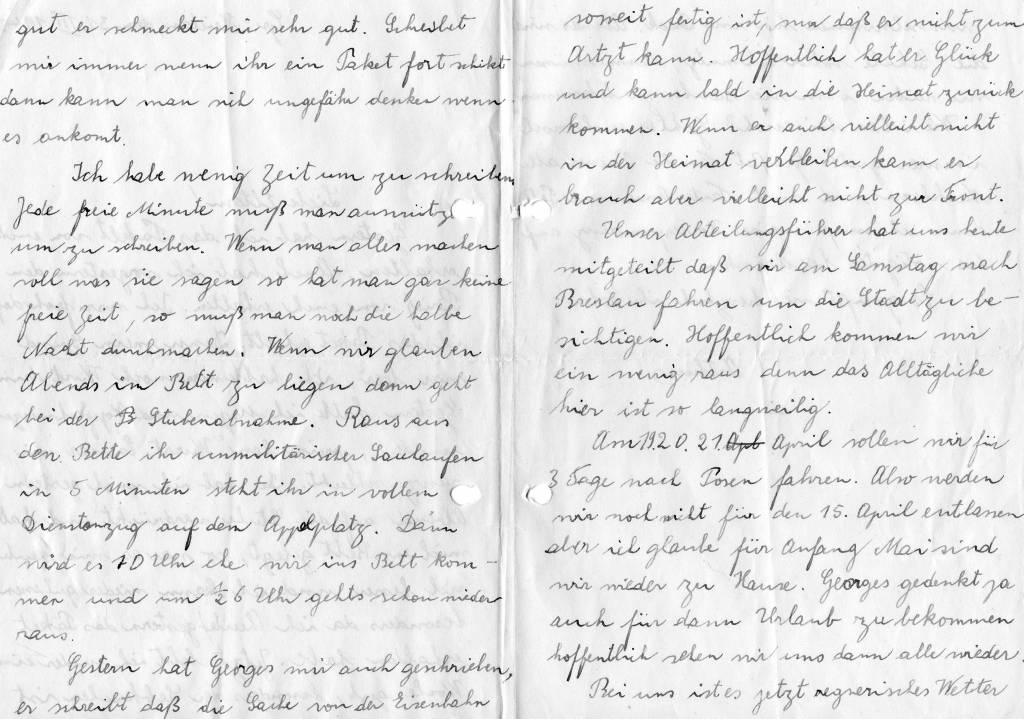 gut er schmeckt mir sehr gut. Schreibet
mir immer wenn ihr ein Paket fort schikt
dann kann man sich ungefähr denken wenn
es ankomt.
Ich habe wenig Zeit um zu schreiben
Jede freie Minute muß man ausnütz
um zu schreiben. Wenn man alles machen
soll was sie sagen so hat man gar keine
freie Zeit, so muß man noch die halbe
Nacht durchmachen. Wenn wir glauben
Abends im Bett zu liegen dann geht
bei der Stubenabnahme. Raus aus
den Bette ihr unmilitärischer Sauhaufen
in 5 Minuten steht ihr in vollem
Dienstanzug auf dem Appelplatz. Dann
wird es 10 Uhr ehe wir ins Bett kom-
men und um ½ 6 Uhr gehts schon wieder
raus.
Gestern hat Georges mir auch geschrieben,
er schreibt daß die Sache von der Eisenbahn
soweit fertig ist, nur daß er nicht zum
Artzt kann. Hoffentlich hat er Glück
und kann bald in die Heimat zurück
kommen. Wenn er auch vielleicht nicht
in der Heimat verbleiben kann er
brauch aber vielleicht nicht zur Front.
Unser Abteilungsführer hat uns heute
mitgeteilt daß wir am Samstag nach
Breslau fahren um die Stadt zu be-
sichtigen. Hoffentlich kommen wir
ein wenig raus denn das Alltägliche
hier ist so langweilig.
Am 19. 20. 21. April sollen wir für
3 Tage nach Posen fahren. Also werden
wir noch nicht für den 15. April entlassen
aber ich glaube für Anfang Mai sind
wir wieder zu Hause. Georges gedenkt ja
auch für dann Urlaub zu bekommen
hoffentlich sehen wir uns dann alle wieder.
Bei uns ist es jetzt regnerisches Wetter